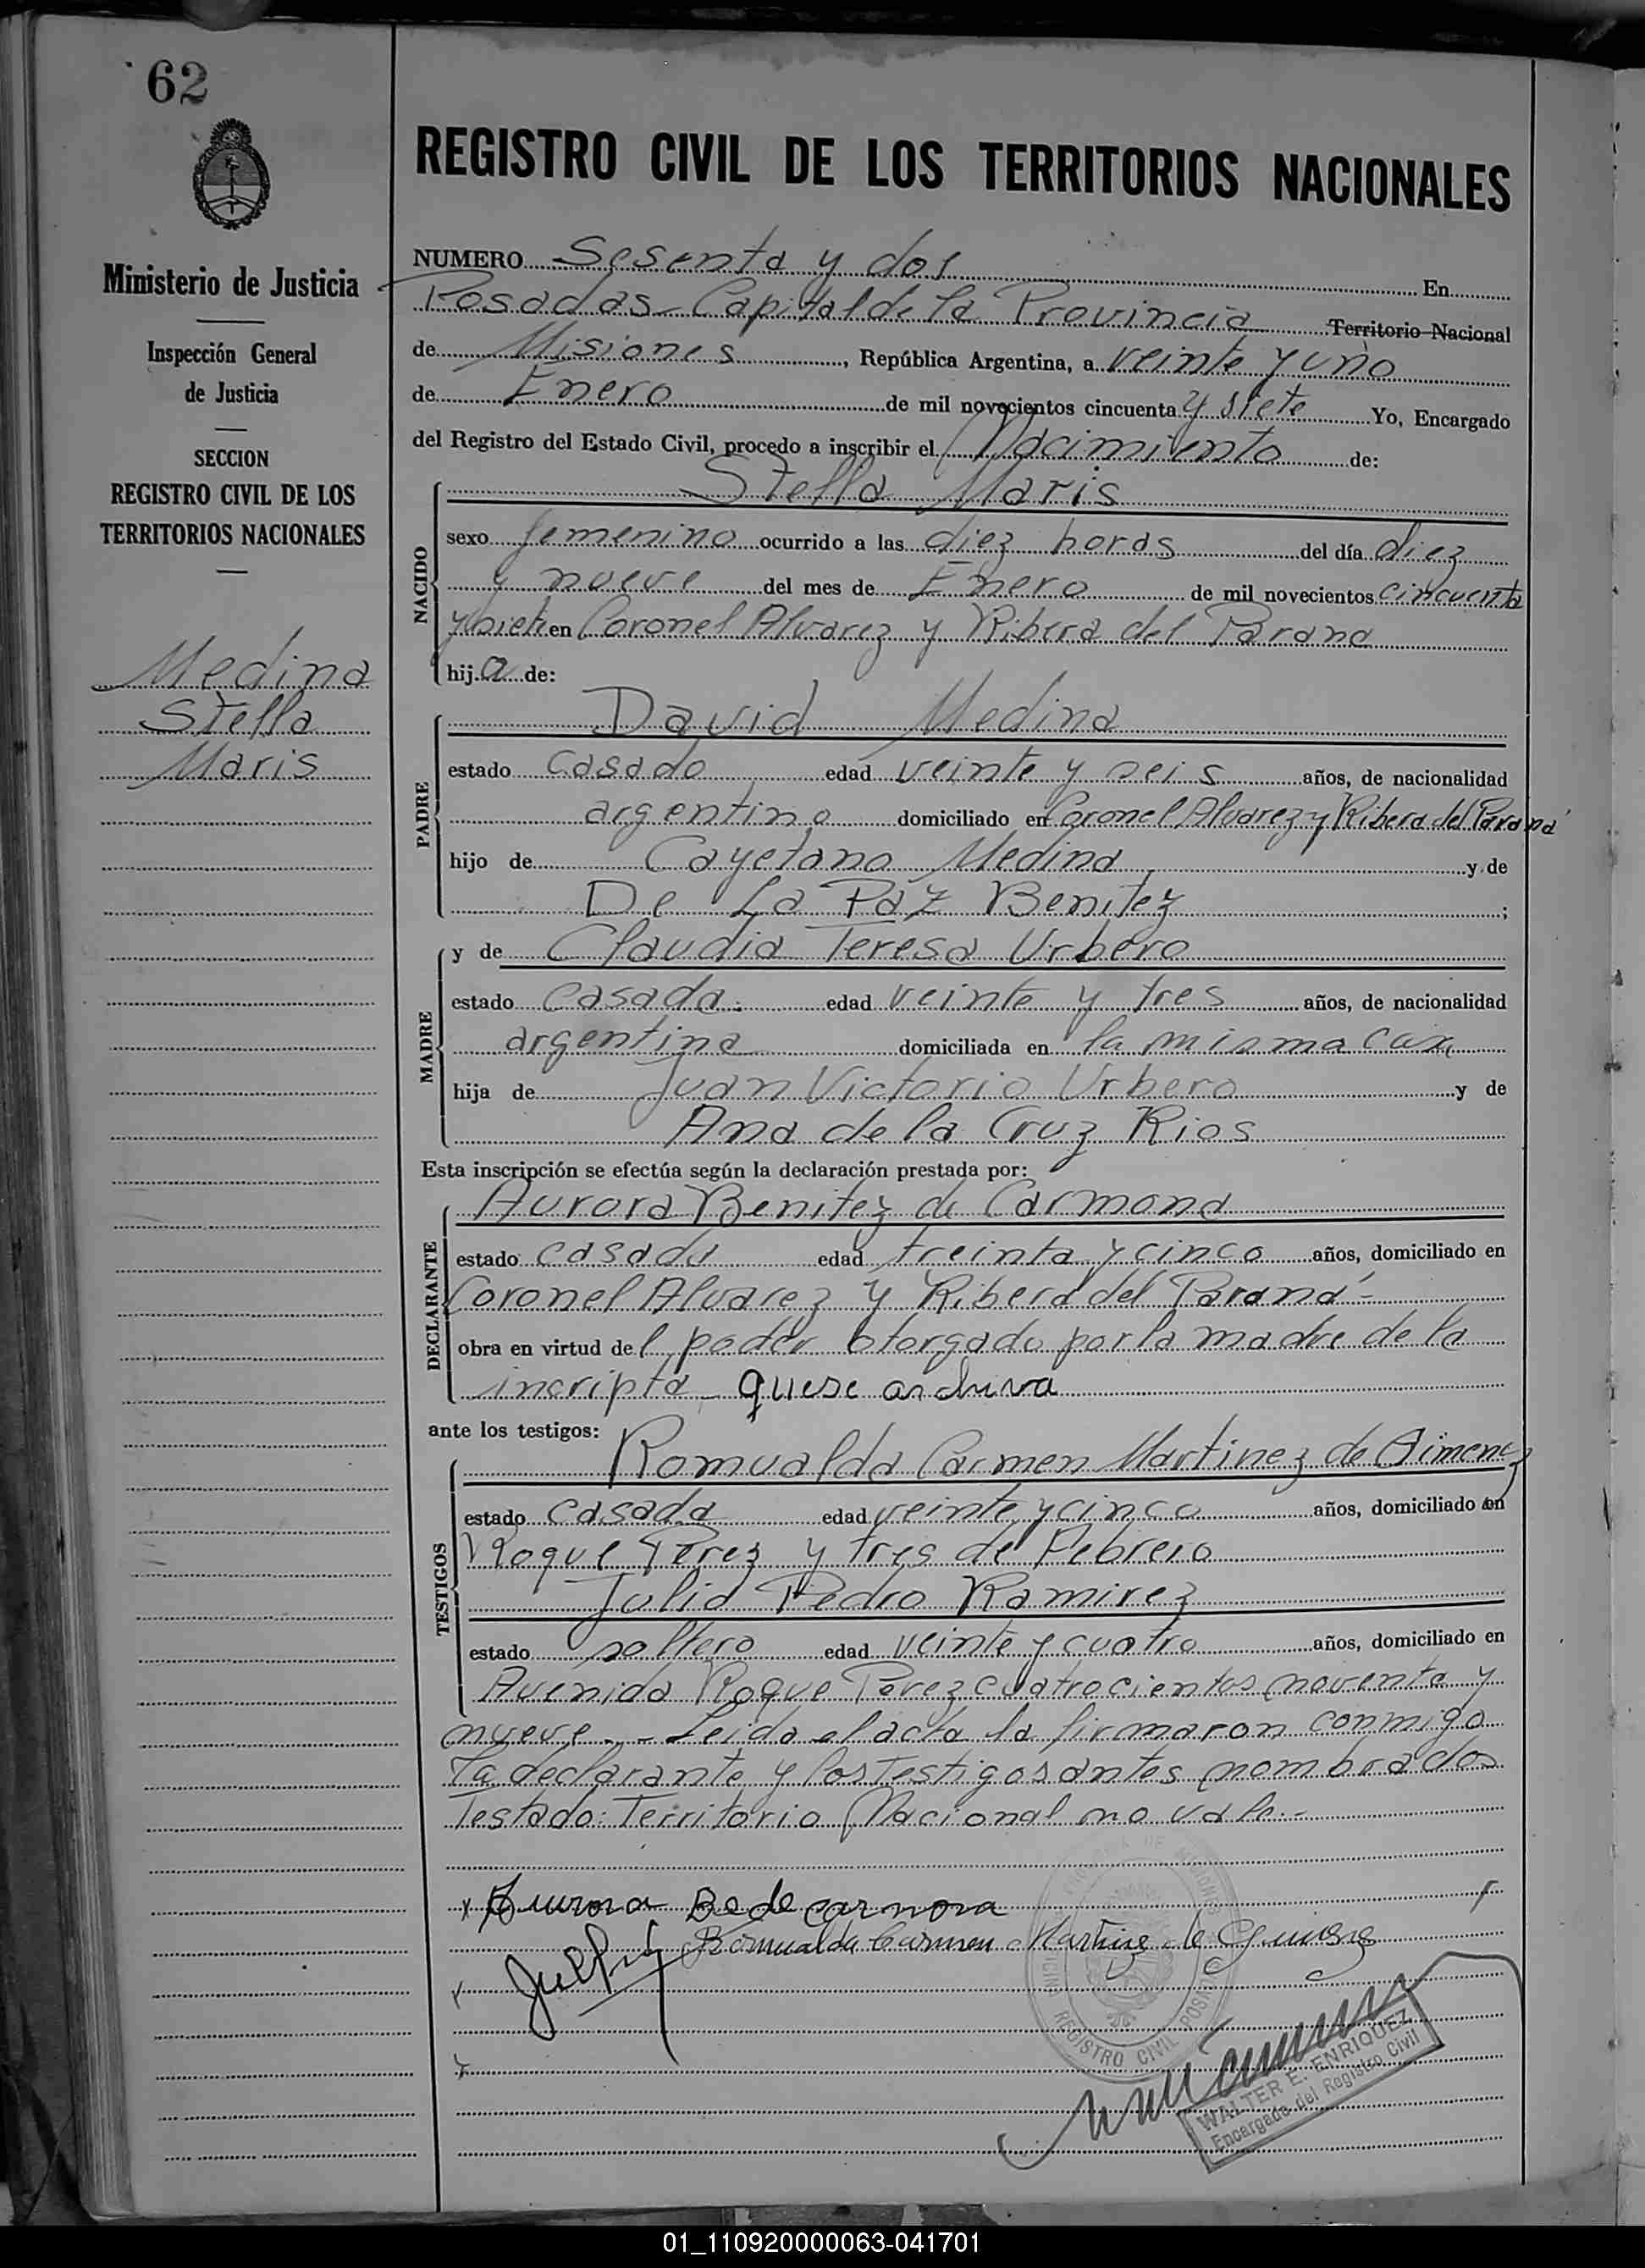 62
REGISTRO CIVIL DE LOS TERRITORIOS NACIONALES
Ministerio de Justicia
Inspección General
de Justicia
SECCION
REGISTRO CIVIL DE LOS
TERRITORIOS NACIONALES
Medina
Stella
Maris
NUMERO Sesenta y dos En
Posadas - Capital de la Provincia Territorio Nacional
de Misiones, República Argentina, a veinte y uno
de Enero de mil novecientos cincuenta y siete Yo, Encargado
del Registro del Estado Civil, procedo a inscribir el Nacimiento de:
Stella Maris
NACIDO
sexo femenino ocurrido a las diez horas del día diez
y nueve del mes de Enero de mil novecientos cincuenta
y siete en Coronel Alvarez y Ribera del Parana
hija de:
David Medina
PADRE
estado casado edad veinte y seis años, de nacionalidad
argentino domiciliado en Coronel Alvarez y Ribera del Paraná
hijo de Cayetano Medina y de
De La Paz Benitez;
y de Claudia Teresa Urbero
MADRE
estado casada. edad veinte y tres años, de nacionalidad
argentina domiciliada en la misma casa
hija de Juan Victorio Urbero y de
Ana de la Cruz Rios
Esta inscripción se efectúa según la declaración prestada por:
Aurora Benitez de Carmona
DECLARANTE
estado casada edad treinta y cinco años, domiciliado en
Coronel Alvarez y Ribera del Paraná -
obra en virtud del poder otorgado por la madre de la
incripta que se archiva
ante los testigos:
Romualda Carmen Martinez de Gimenez
TESTIGOS
estado casada edad veinte y cinco años, domiciliado en
Roque Perez y tres de Febrero
Julio Pedro Ramirez
estado soltero edad veinte y cuatro años, domiciliado en
Avenida Roque Perez cuatrocientos noventa y
nueve.- Leida el acta la firmaron conmigo
la declarante y los testigos antes nombrados
Testado: Territorio Nacional no vale.-
Aurora B de Carmona
Romualda Carmen Martinez de Gimenez
REGISTRO CIVIL POSADAS
WALTER E. ENRIQUEZ
Encargado del Registro Civil
01_110920000063-041701